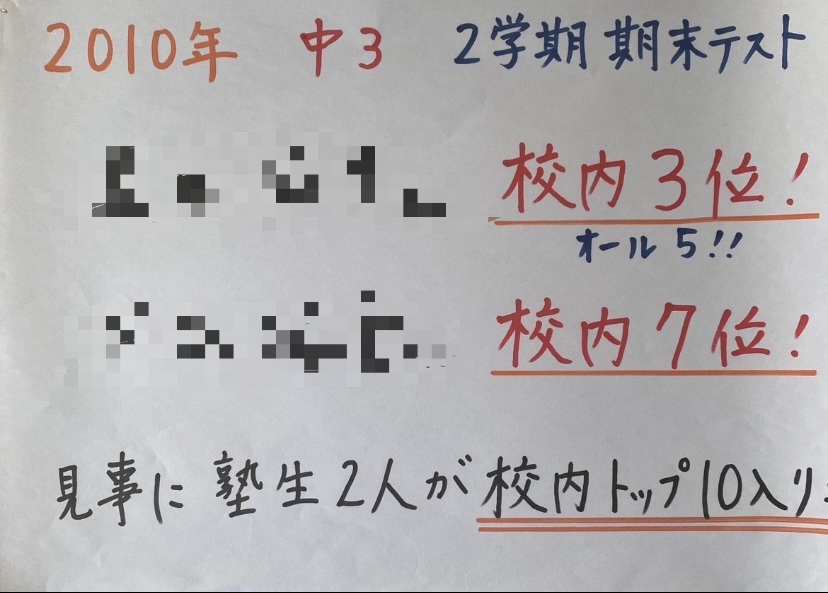 2010年 中3 2学期 期末テスト
校内3位!
オール5!!
校内7位!
見事に塾生2人が校内トップ10入り